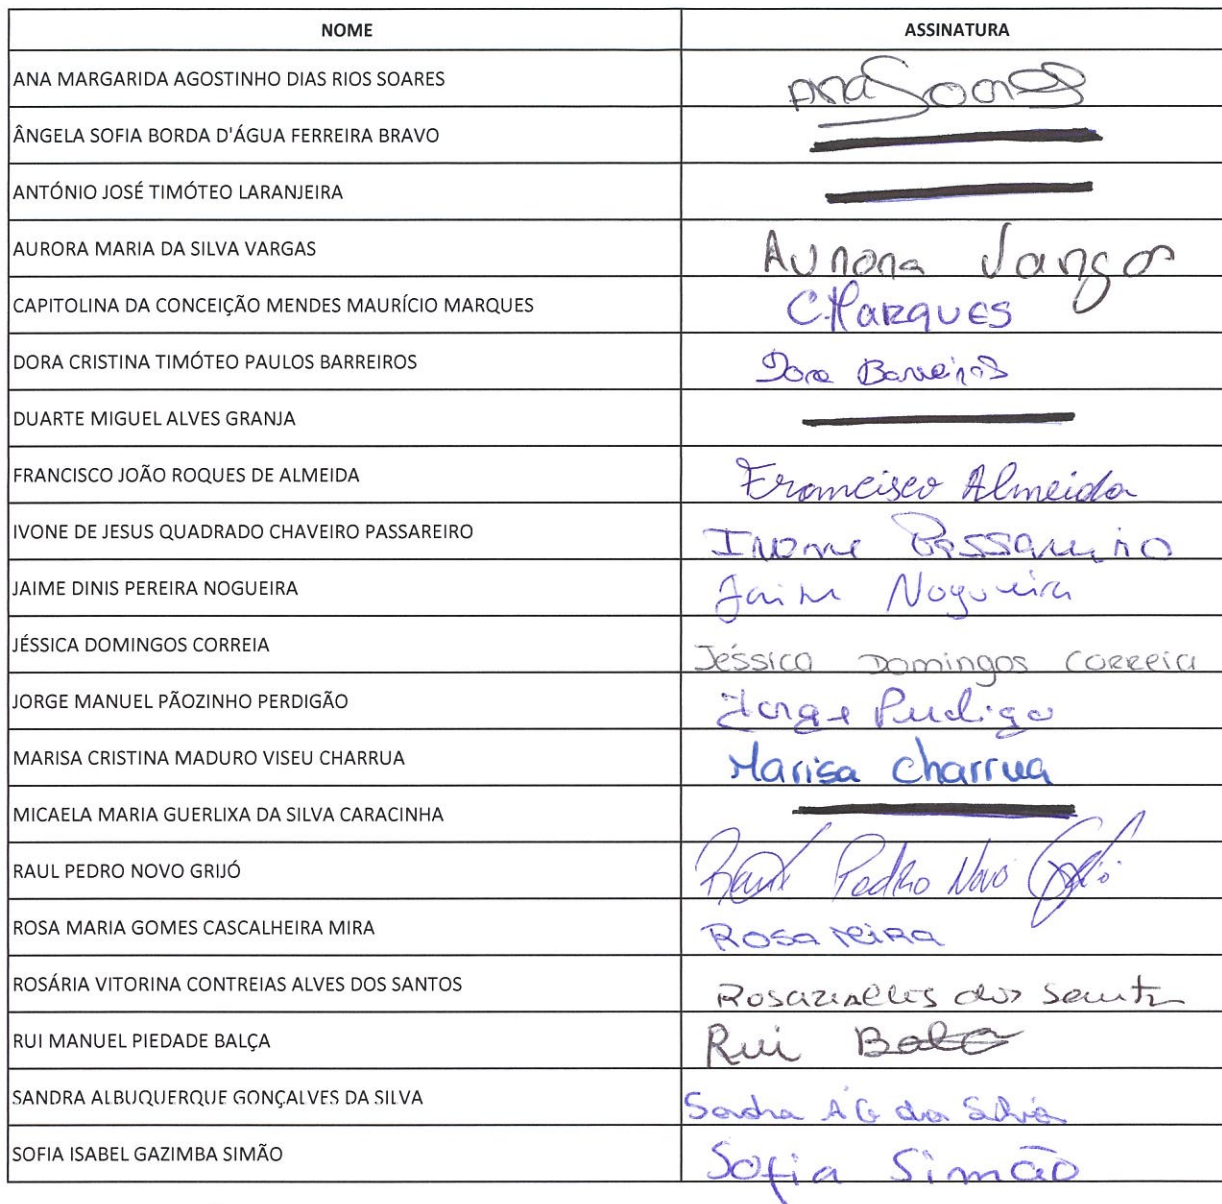 NOME ASSINATURA
ANA MARGARIDA AGOSTINHO DIAS RIOS SOARES Ana Soares
ÂNGELA SOFIA BORDA D'ÁGUA FERREIRA BRAVO
ANTÓNIO JOSÉ TIMÓTEO LARANJEIRA
AURORA MARIA DA SILVA VARGAS Aurora Vargas
CAPITOLINA DA CONCEIÇÃO MENDES MAURÍCIO MARQUES C.Marques
DORA CRISTINA TIMÓTEO PAULOS BARREIROS Dora Barreiros
DUARTE MIGUEL ALVES GRANJA
FRANCISCO JOÃO ROQUES DE ALMEIDA Francisco Almeida
IVONE DE JESUS QUADRADO CHAVEIRO PASSAREIRO Ivone Passareiro
JAIME DINIS PEREIRA NOGUEIRA Jaime Nogueira
JÉSSICA DOMINGOS CORREIA Jéssica Domingos Correia
JORGE MANUEL PÃOZINHO PERDIGÃO Jorge Perdigo
MARISA CRISTINA MADURO VISEU CHARRUA Marisa Charrua
MICAELA MARIA GUERLIXA DA SILVA CARACINHA
RAUL PEDRO NOVO GRIJÓ Raul Pedro Novo Grijó
ROSA MARIA GOMES CASCALHEIRA MIRA Rosa Mira
ROSÁRIA VITORINA CONTREIAS ALVES DOS SANTOS dos Santos
RUI MANUEL PIEDADE BALÇA Rui Balça
SANDRA ALBUQUERQUE GONÇALVES DA SILVA Sandra A G da Silva
SOFIA ISABEL GAZIMBA SIMÃO Sofia Simão